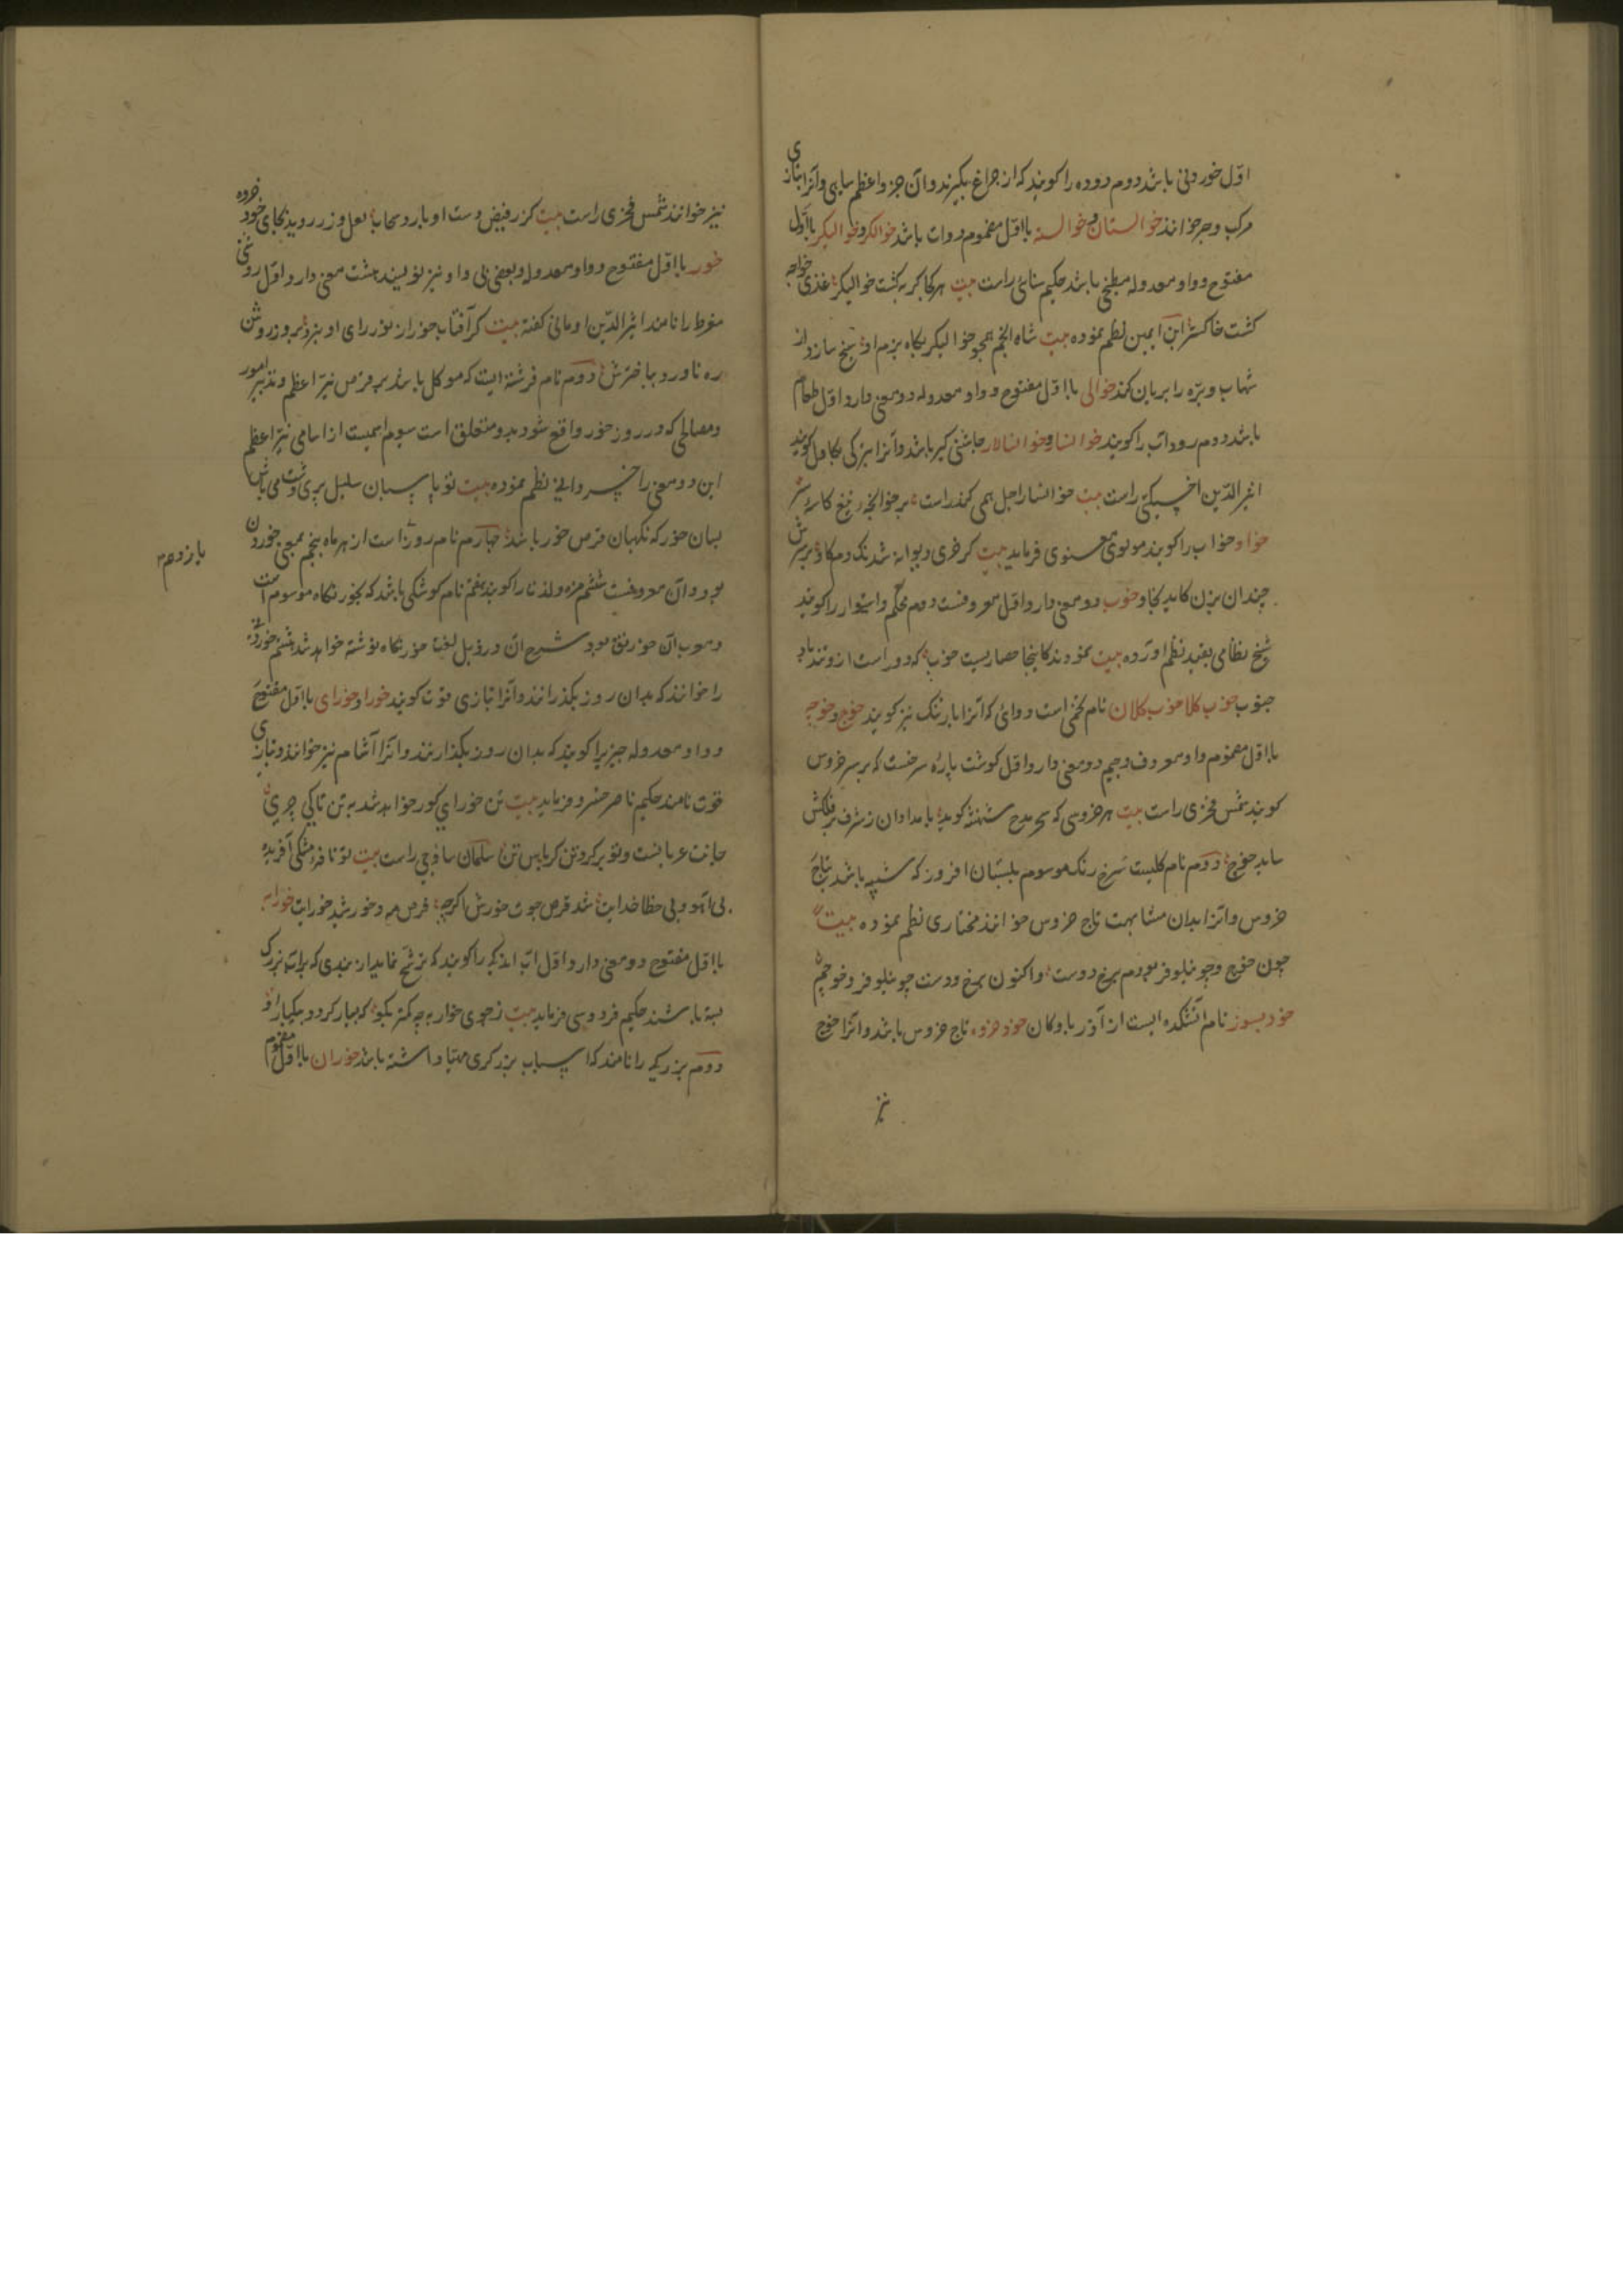 اول خوردنی باشد دوم دوده را کویند که از چراغ بکیرند و آن جزو اعظم سیاهی و آنرا بتازی
مرکب و حبر خوانند خوالستان و خوالسته بااول مضموم دوات باشد خوالکر و خوالیکر بااول
مفتوح و واو معدوله مطبخی باشد حکیم سنائی راست بیت هرکجا کر به کشت خوالیکر غذی خواجه
کشت خاکستر ابن یمین نظم نموده بیت شاه انجم همچو خوالیکر بکاه بزم او سیخ سازد از
شهاب و بره را بریان کند خوالی بااول مفتوح و واو معدوله دو معنی دارد اول طعام
باشد دوم روداب را کویند خوانسار و خوانسالار چاشنی کیر باشد و آنرا بترکی بکاول کویند
اثیرالدین اخسیکتی راست بیت خوانسار اجل همی کندراست بر خوانچه تیغ کاسه سر
خواو خواب را کویند مولوی معنوی فرماید بیت کر خری دیوانه شد نک دم کاو بر سرش
چندان بزن کاید بجاو خوب دو معنی دارد اول معروفست دوم محکم و استوار را کویند
شیخ نظامی بقید نظم آورده بیت نمودند کاینجا حصاریست خوب که دور است از و تند باد
جنوب خوب کلا خوب کلان نام تخمی است دوائی که آنرا بارتنک نیز کویند خوج و خوجه
بااول مضموم واو معروف و جیم دو معنی دارد اول کوشت پاره سرخست که بر سر خروس
کویند شمس فخری راست بیت هر خروسی که سحر مدح شهنشه کوید بامدادان ز شرف بر فلکش
ساید خوج دوم نام کلیست سرخ رنک موسوم ببستان افروز که شبیه باشد بتاج
خروس و آنرا بدان مشابهت تاج خروس خوانند مختاری نظم نموده بیت
چون خوج و چو نیلوفر بودم برخ دوست واکنون برخ و دست چو نیلوفر و خوجم
خود بسوز نام آتشکده ایست از آذر بادکان خود خروه تاج خروس باشد و آنرا خوج
نیز
نیز خوانند شمس فخری راست بیت کز رفیض دست او بارد سحاب لعل و زر روید بجای خود خروه
خور بااول مفتوح و واو معدوله و بعضی بی واو نیز نویسند هشت معنی دارد اول روشنی
مفرط را نامند اثیرالدین اومانی کفته بیت کر آفتاب خور از نور رای او نبرد بروز روشن
ره ناورد بباخترش دوم نام فرشته ایست که موکل باشد بر قرص نیر اعظم و تدبیر امور
و مصالحی که در روز خور واقع شود بدو متعلق است سیوم اسمیست از اسامی نیر اعظم
این دو معنی را خسروانی نظم نموده بیت تو پاسبان سلسل پری وشت می باش
بسان خور که نکهبان قرص خور باشد چهارم نام روز یازدهم است از هر ماه پنجم بمعنی خوردن
بود و آن معروفست ششم مزه و لذت را کویند هفتم نام کوشکی باشد که بخورنکاه موسوم است
و معرب آن خورنق بود شرح آن در ذیل لغت خورنکاه نوشته خواهد شد هشتم خوردنی
را خوانند که بدان روز بکذرانند و آنرا بتازی قوت کویند خورا و خورای بااول مفتوح
و واو معدوله چیزیرا کویند که بدان روز بکذارنند و آنرا آشام نیز خوانند و بتازی
قوت نامند حکیم ناصر خسرو فرماید بیت تن خورای کور خواهد شد به تن تا کی چری
جانت عریانست و تو بر کرد تن کرباس تن سلمان ساوجی راست بیت تو نافه مشکی آفریده
بی آهو و بی خطا خدایت شد قرص جوت خورش اکرچه قرص مه و خورشد خورایت خورابه
بااول مفتوح دو معنی دارد اول آب اندکی را کویند که ترشح نماید از بندی که برآب بزرک
بسته باشند حکیم فردوسی فرماید بیت ز جوی خورابه چه کمتر بکو که بسیار کردد بیکبار او
دوم بزریکری را نامند که اسباب بزرکری مهیا داشته باشد خوران بااول مضموم
یازدهم